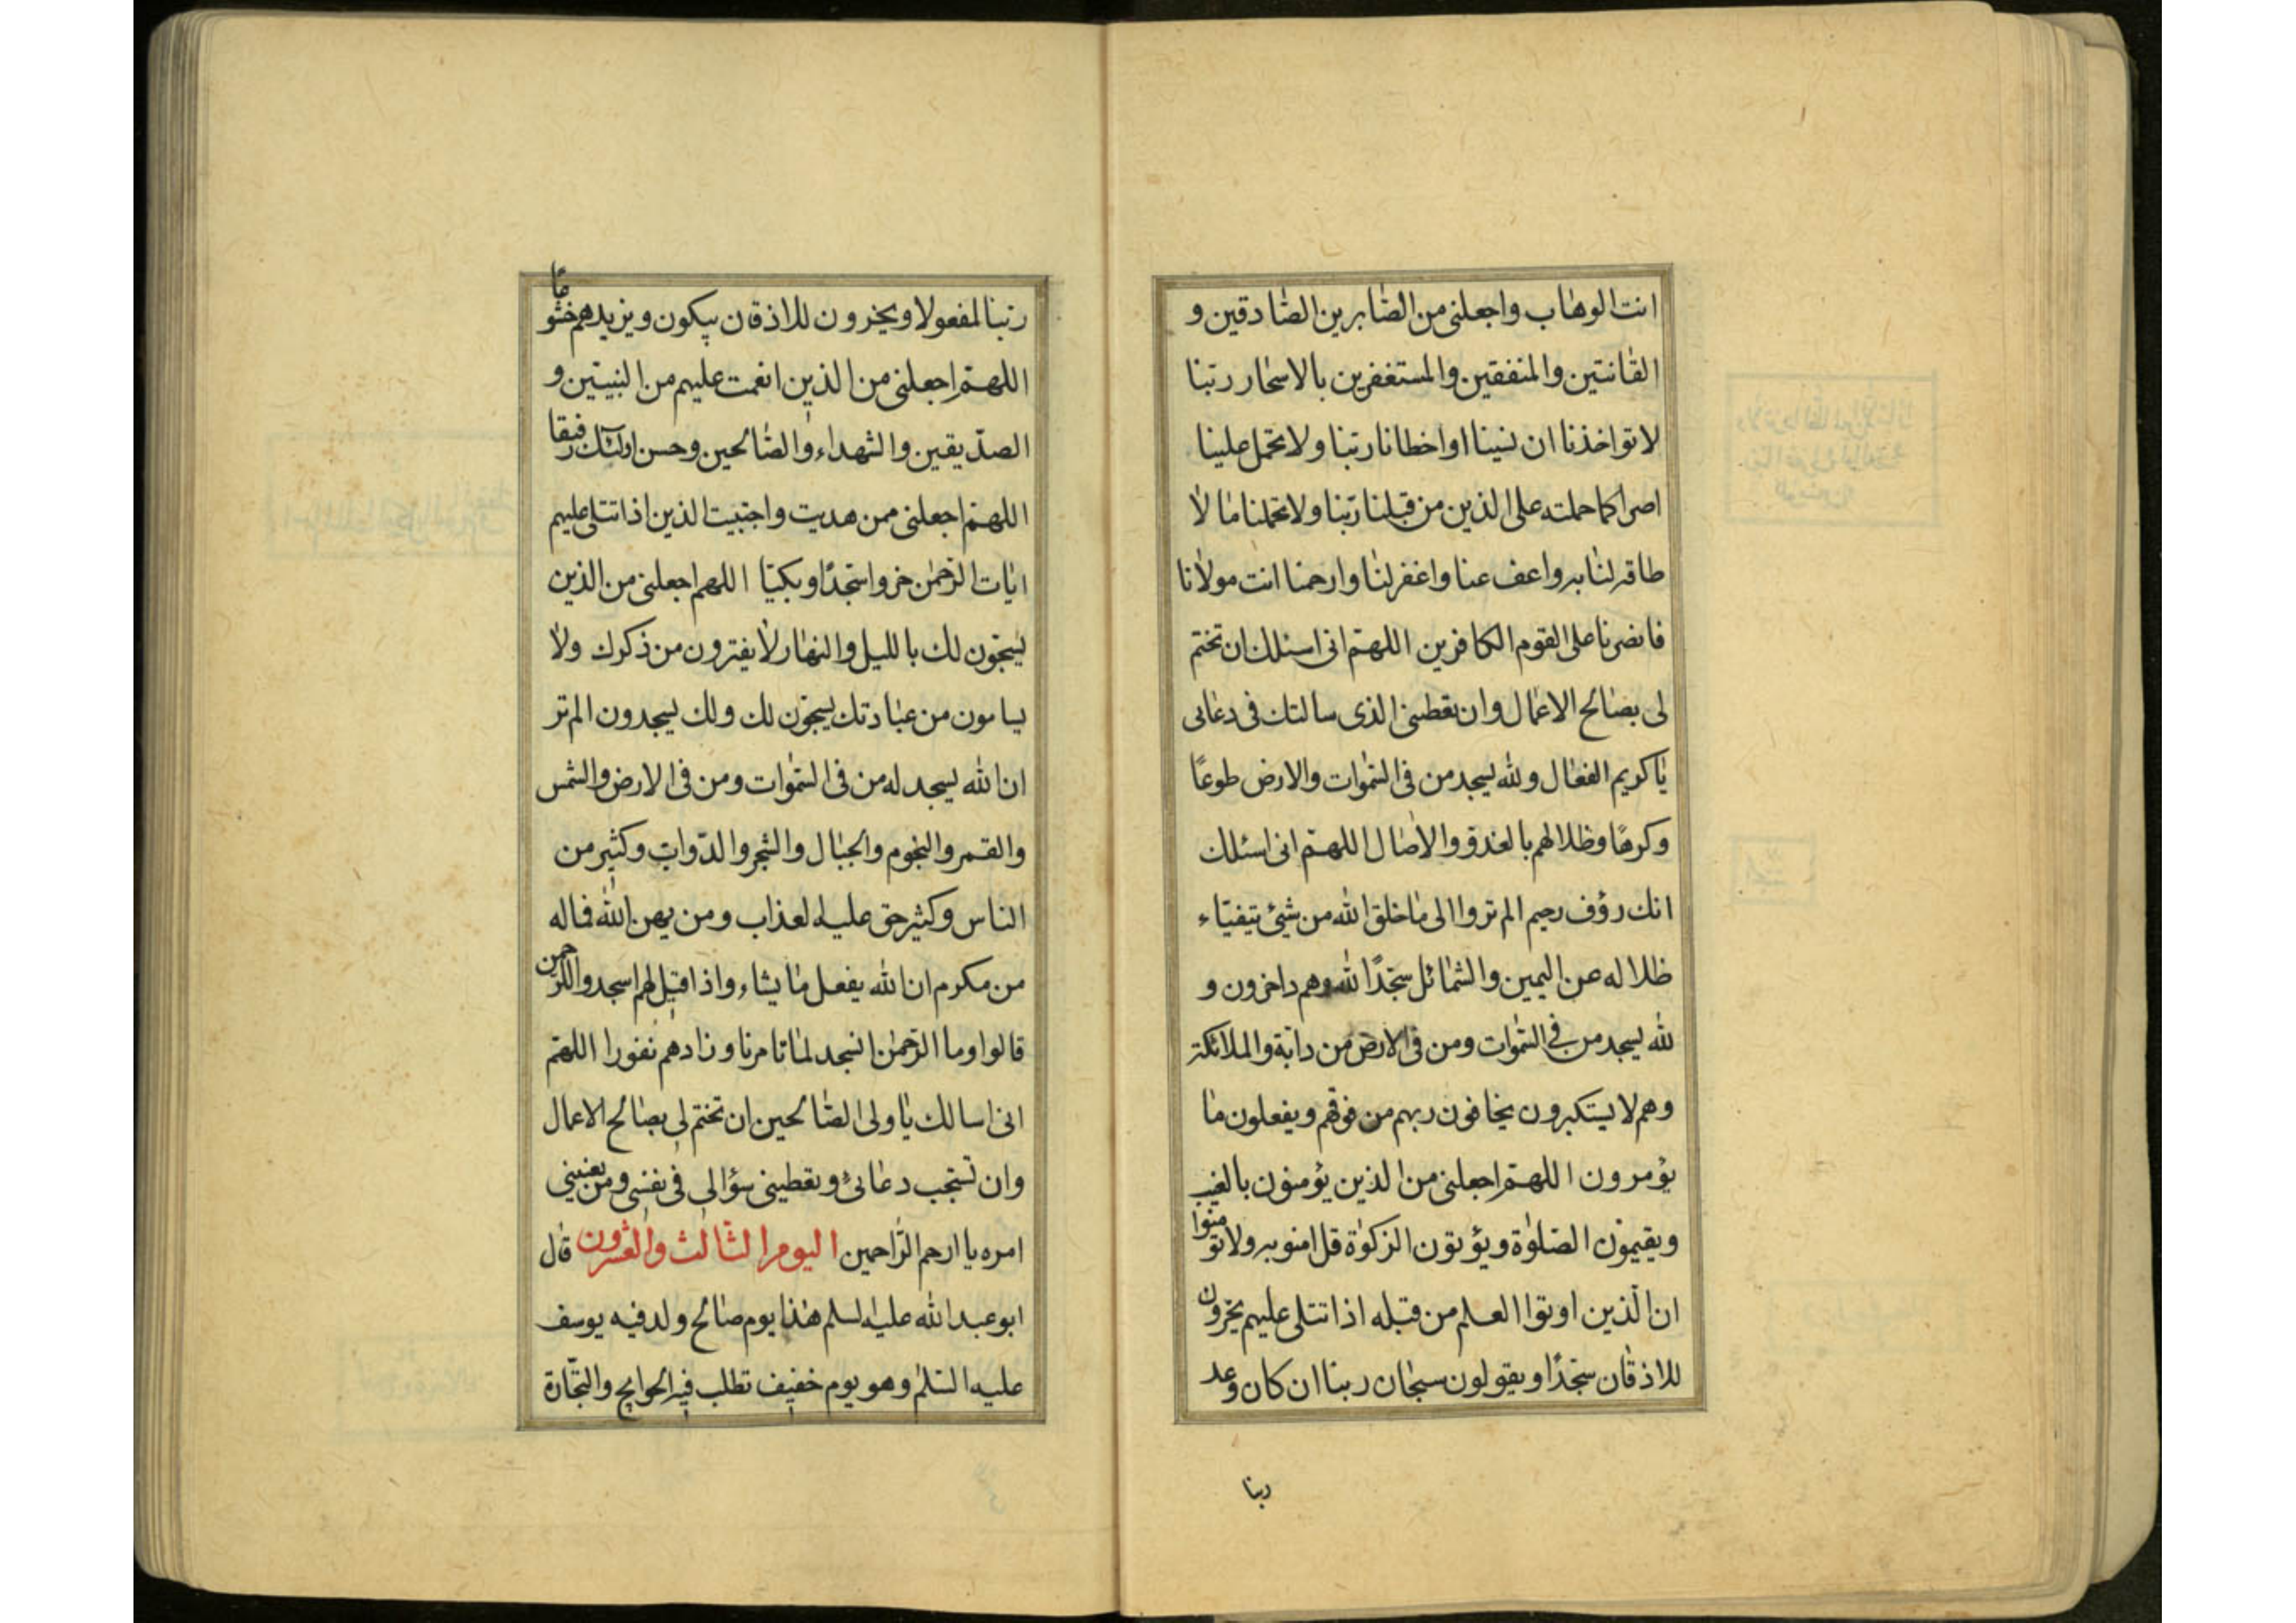 انت الوهاب واجعلنی من الصابرین الصادقین و
القانتین والمنفقین والمستغفرین بالاسحار ربنا
لا تواخذنا ان نسینا او اخطانا ربنا ولا تحمل علینا
اصرا کما حملته علی الذین من قبلنا ربنا ولا تحملنا ما لا
طاقة لنا به واعف عنا واغفر لنا وارحمنا انت مولانا
فانصرنا علی القوم الکافرین اللهم انی اسئلك ان تختم
لی بصالح الاعمال وان تعطینی الذی سالتك فی دعائی
یا کریم الفعال ولله یسجد من فی السموات والارض طوعًا
وکرهًا وظلالهم بالغدو والاصال اللهم انی اسئلك
انك رؤف رحیم الم تروا الی ما خلق الله من شیئ یتفیاء
ظلاله عن الیمین والشمائل سجدًا لله وهم داخرون و
لله یسجد من فی السموات ومن فی الارض من دابة والملائکة
وهم لا یستکبرون یخافون ربهم من فوقهم ویفعلون ما
یؤمرون اللهم اجعلنی من الذین یؤمنون بالغیب
ویقیمون الصلوة ویؤتون الزکوة قل امنو به ولا تو منوا
ان الذین اوتوا العلم من قبله اذا تتلی علیهم یخرون
للاذقان سجدًا ویقولون سبحان ربنا ان کان وعد
ربنا
ربنا لمفعولا ویخرون للاذقان یبکون ویزیدهم خشوعًا
اللهم اجعلنی من الذین انعمت علیهم من النبیین و
الصدیقین والشهداء والصالحین وحسن اولئك رفیقا
اللهم اجعلنی ممن هدیت واجتبیت الذین اذا تتلی علیهم
ایات الرحمن خروا سجدًا وبکیا اللهم اجعلنی من الذین
یسبحون لك باللیل والنهار لا یفترون من ذکرك ولا
یسامون من عبادتك یسبحون لك ولك یسجدون الم تر
ان الله یسجد له من فی السموات ومن فی الارض والشمس
والقمر والنجوم والجبال والشجر والدواب وکثیر من
الناس وکثیر حق علیه العذاب ومن یهن الله فما له
من مکرم ان الله یفعل ما یشاء واذا قیل لهم اسجدوا للرحمن
قالوا وما الرحمن انسجد لما تامرنا وزادهم نفورا اللهم
انی اسالك یا ولی الصالحین ان تختم لی بصالح الاعمال
وان تستجب دعائی وتعطینی سؤالی فی نفسی ومن یعنینی
امره یا ارحم الراحمین الیوم الثالث والعشرون قال
ابو عبد الله علیه السلم هذا یوم صالح ولد فیه یوسف
علیه السلم وهو یوم خفیف تطلب فیه الحوایج والتجارة